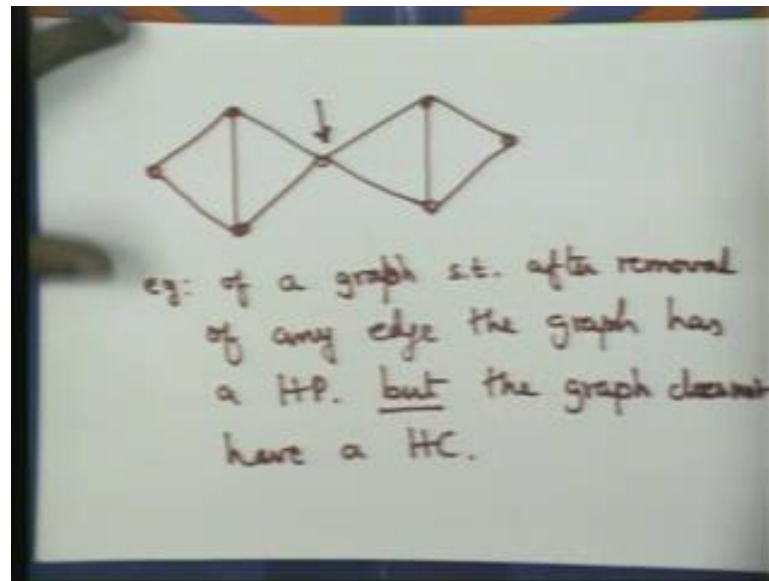 eg: of a graph s.t. after removal
of any edge the graph has
a HP. but the graph doesnot
have a HC.